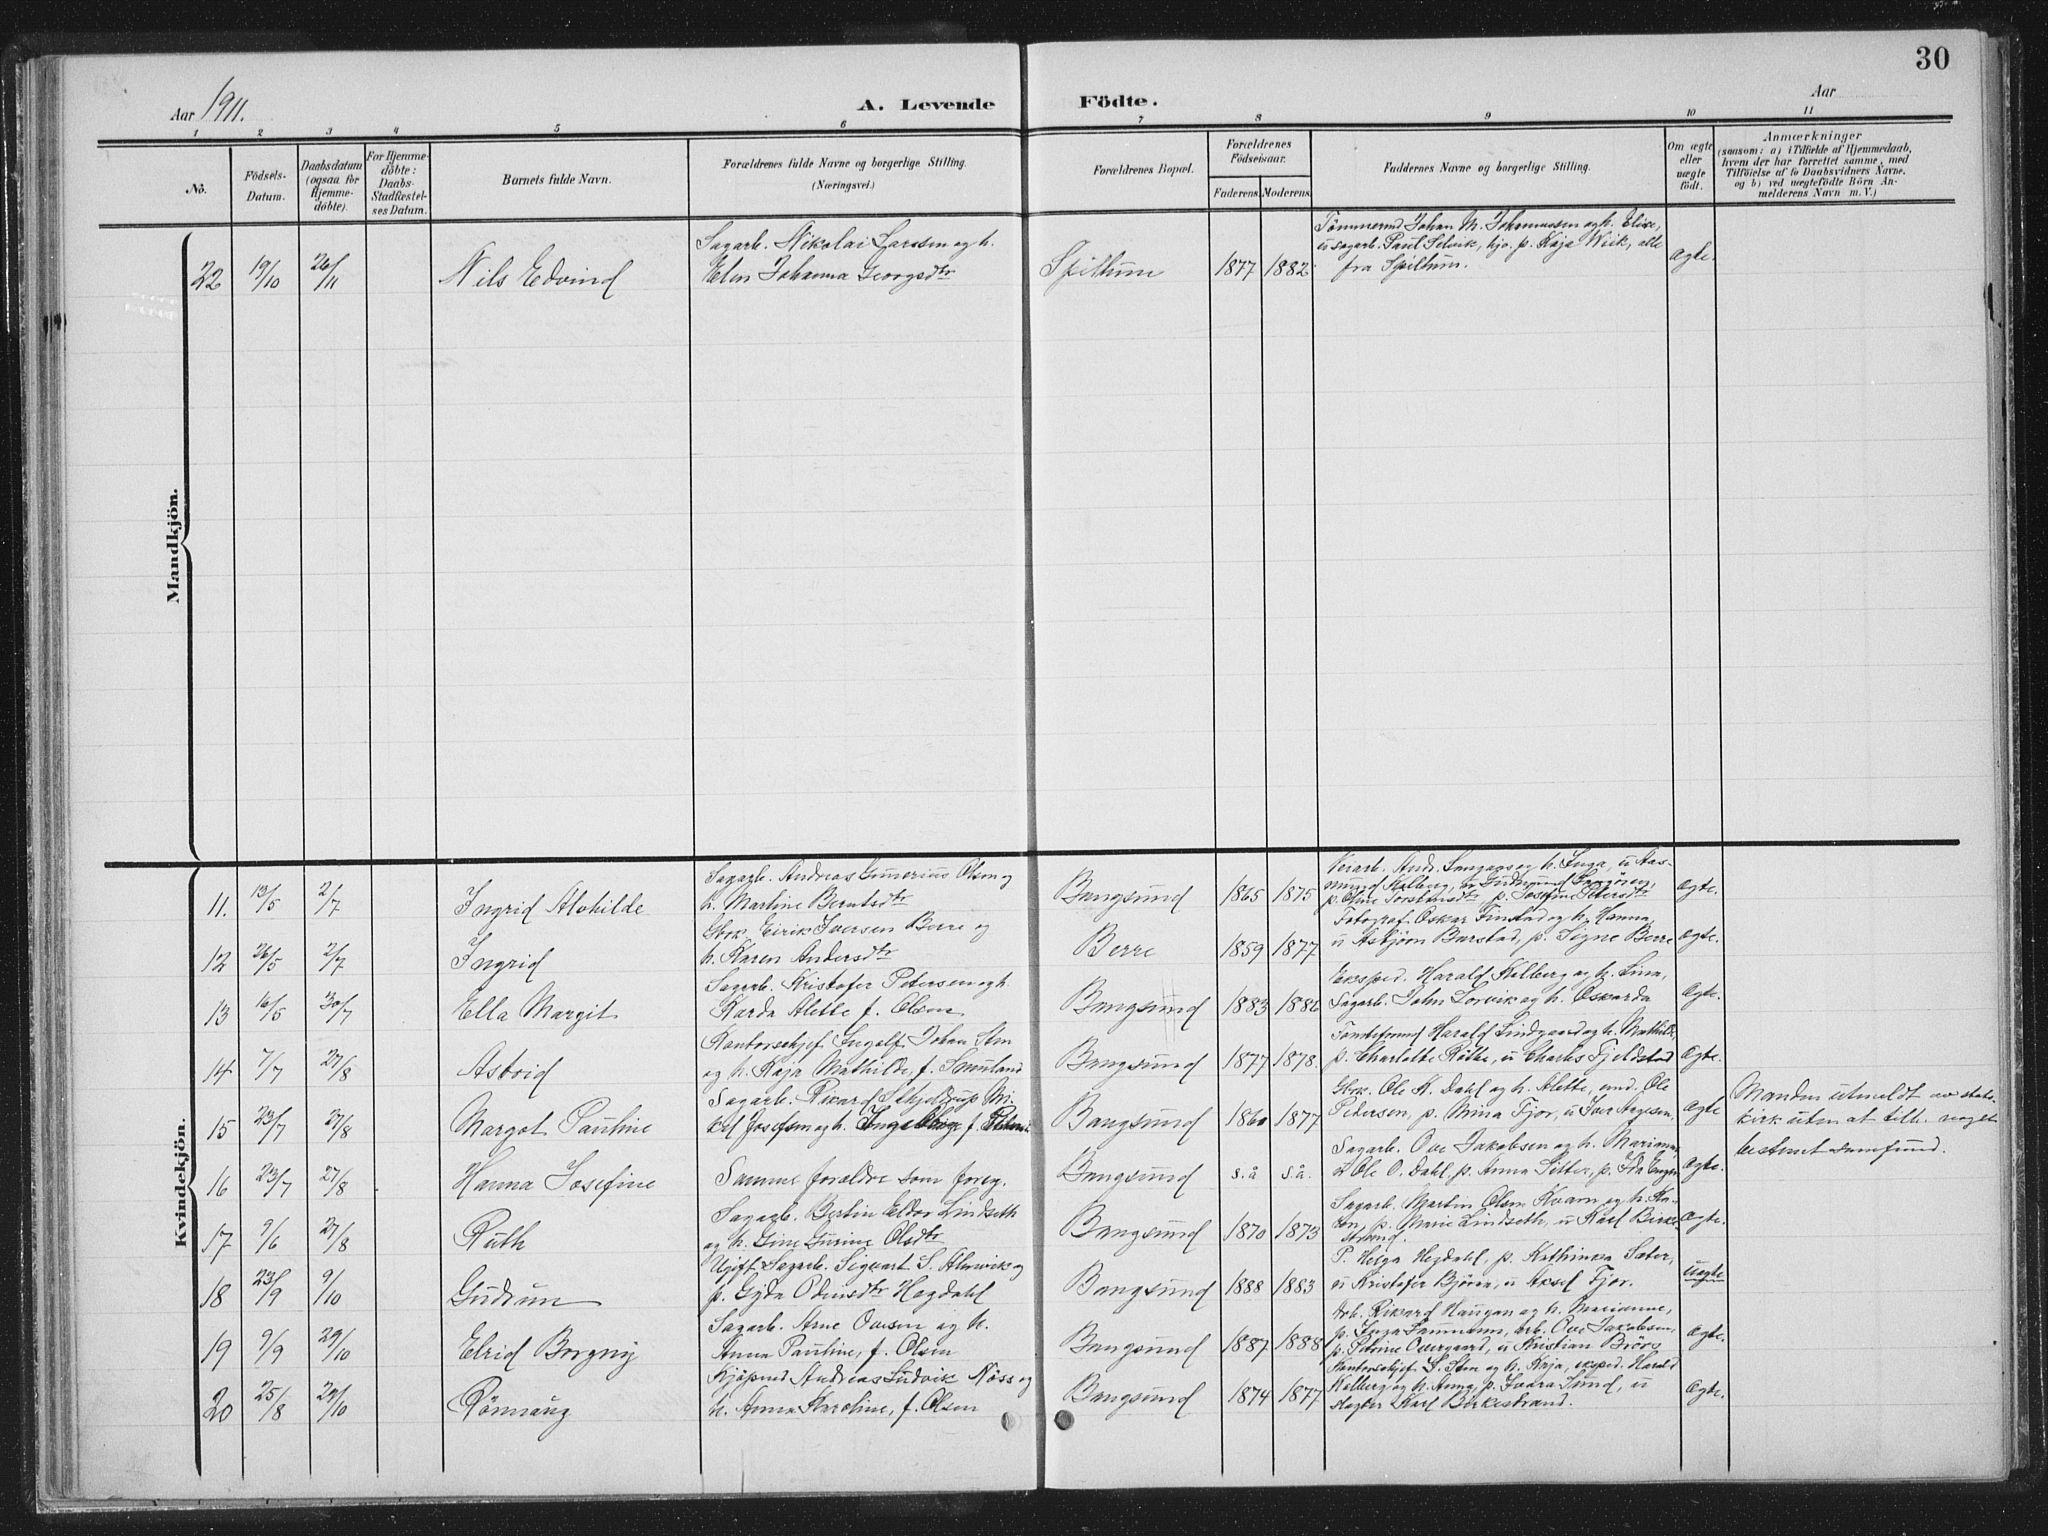 30
Aar 1911.
A. Levende Födte.
Aar
1 2 3 4 5 6 7 8 9 10 11
No.
Födsels-Datum.
Daabsdatum (ogsaa for Hjemme-döbte).
For Hjemme-döbte: Daabs-Stadfæstel-ses Datum.
Barnets fulde Navn.
Forældrenes fulde Navne og borgerlige Stilling.
(Næringsvei.)
Forældrenes Bopæl.
Forældrenes Födselsaar.
Faderens. Moderens.
Faddernes Navne og borgerlige Stilling.
Om ægte eller uægte födt.
Anmærkninger
(saasom: a) i Tilfælde af Hjemmedaab,
hvem der har forrettet samme, med
Tilföielse af to Daabsvidners Navne.
og b) ved uægtefödte Börn An-
melderens Navn m. V.)
Mandkjön.
22 19/10 26/11 Nils Edvind
Sagarb. Nikolai Larssen og h.
Elen Johanna Georgsdtr
Spillum 1877 1882
Tömmermd Johan M. Johannessen og h. Elise,
u sagarb. Paul Selvik, hjo. p. Kaja Wiik, alle
fra Spillum.
ægte.
Kvindekjön.
11. 13/5 2/7 Ingrid Alvhilde
Sagarb. Andreas Gunerius Olsen og
h. Martine Berntsdtr
Bangsund 1865 1875
p. Oline Torstensdtr p. Josefine Petersdtr
ægte.
12 26/5 2/7 Ingrid
Gbrk. Eirik Iversen Berre og
h. Karen Andersdtr
Berre 1859 1877
Fotograf Oskar Finstad og h. Hanna,
u Asbjörn Barstad, p. Signe Berre
ægte.
13 16/5 30/7 Ella Margit
Sagarb. Kristofer Petersen og h.
Karda Alette f. Olsen
Bangsund 1883 1886
Eksped. Harald Kolberg og h. Lina,
Sagarb. John Lorvik og h. Oskarda
ægte.
14 7/7 27/8 Astrid
Kontorschef Ingolf Johan Stm
og h. Kaja Mathilde, f. Smuland
Bangsund 1877 1878.
Harald Lindgaard og h. Mathilde,
p. Charlotte Röthe, u Charles Fjeldstad
ægte.
15 23/7 27/8 Margot Pauline
Sagarb. Rikard Schjeldrup Mi-
kal Josefsen og h. Ingeborg f.
Bangsund 1860 1877
Gbrk. Ole K. Dahl og h. Alette, und. Ole
Pedersen, p. Mina Fjor, u Ivar Aagesen,
ægte
Manden utmeldt av stats-
kirk uten at tilh. noget
bestemt samfund.
16 23/7 27/8 Hanna Josefine
Samme forældre som foreg.
Bangsund s.å s.å.
Sagarb. Ove Jakobsen og h. Marianna,
Ole O. Dahl, p. Anna Sitter, p. Ida
ægte.
17 9/6 27/8 Ruth
Sagarb. Bertin Eldor Lindseth
og h. Gine Gurine Olsdtr
Bangsund 1870 1873
Sagarb. Martin Olsen Kvam og h. Ka-
ren, p. Marie Lindseth, u Karl Birke-
strand.
ægte.
18 23/9 9/10 Gudrun
Ugift Sagarb. Sigvart S. Almvik og
p. Gyda Odinsdtr Hagdahl
Bangsund 1888 1883
P. Helga Hegdahl, p. Kathinka Sæter,
u Kristofer Björnn, u Aksel Fjor.
uægte
19 9/9 29/10 Elrid Borgny
Sagarb. Arne Ovesen og h.
Anna Pauline, f. Olsen
Bangsund 1887 1888
Arb. Rikard Haugan og h. Marianne,
p. Inga Fammem, arb. Ove Jakobsen,
p. Petrine Overgaard, u Kristian Biörs
ægte.
20 25/8 29/10 Rönnaug
Kjöpmd Andreas Ludvik Näss og
h. Anna Karoline, f. Olsen
Bangsund 1874 1877
Kontorschef S. Stm og h. Kaja, eksped. Harald
Kolberg og h. Anna, p. Ivara Sund, u
Slagter Karl Birkestrand.
ægte.